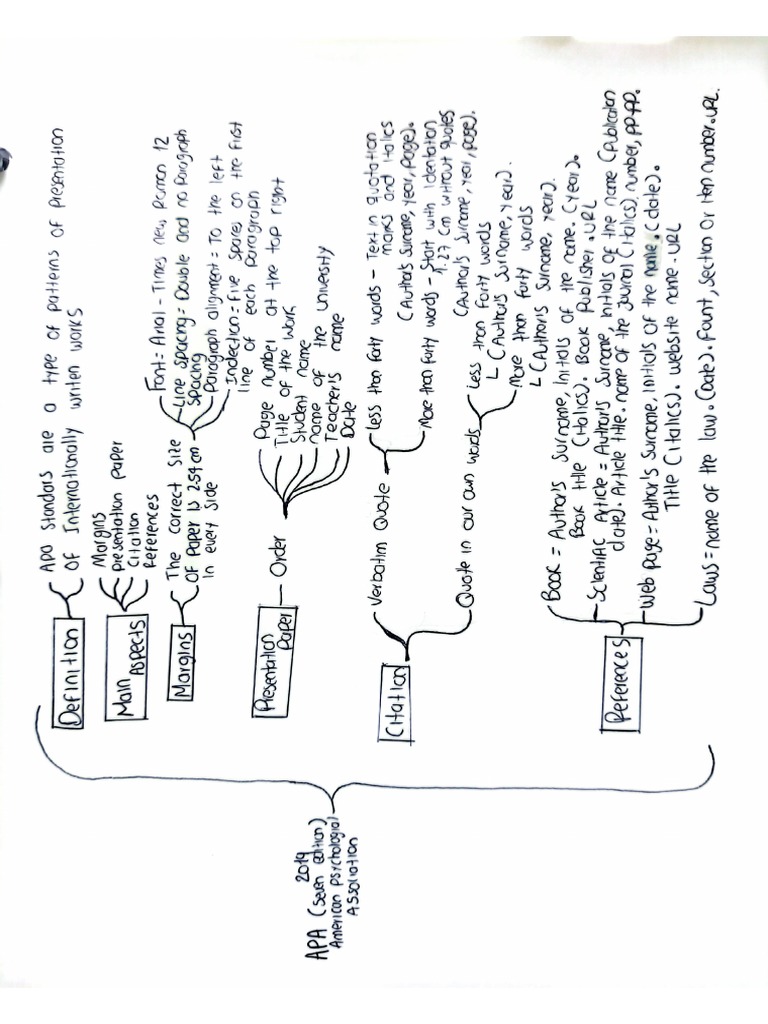 APA 2019
(seven edition)
American Psychological
Association
Definition
APA Standars are a type of patterns of presentation
of Internationally writen works
Main
Aspects
Margins
presentation paper
Citation
References
Margins
The correct size
of paper is 2.54 cm
in every side
Font = Arial - Times new Roman 12
Line spacing = Double and no paragraph
spacing
Paragraph alignment = To the left
Indection = Five spares on the first
line of each paragraph
Presentation
Paper
Order
Page number at the top right
Title of the work
Student name
name of the university
Teacher's name
Date
Citation
Verbatim Quote
Less than forty words - Text in quotation
marks and italics
(Author's surname, year, page).
More than forty words - Start with identation
1.27 cm without quotes
(Author's surname, year, page).
Quote in our own words
Less than forty words
(Author's surname, year).
More than forty words
(Author's surname, year).
References
Book = Author's surname, Initials of the name. (year).
Book title (italics). Book Publisher. URL
Scientific Article = Author's surname, initials of the name (publication
date). Article title. name of the journal (italics), number, pp-pp.
Web page = Author's surname, initials of the name. (date).
Title (italics). website name. URL
Laws = name of the law. (Date). Fount, section or item number. URL.